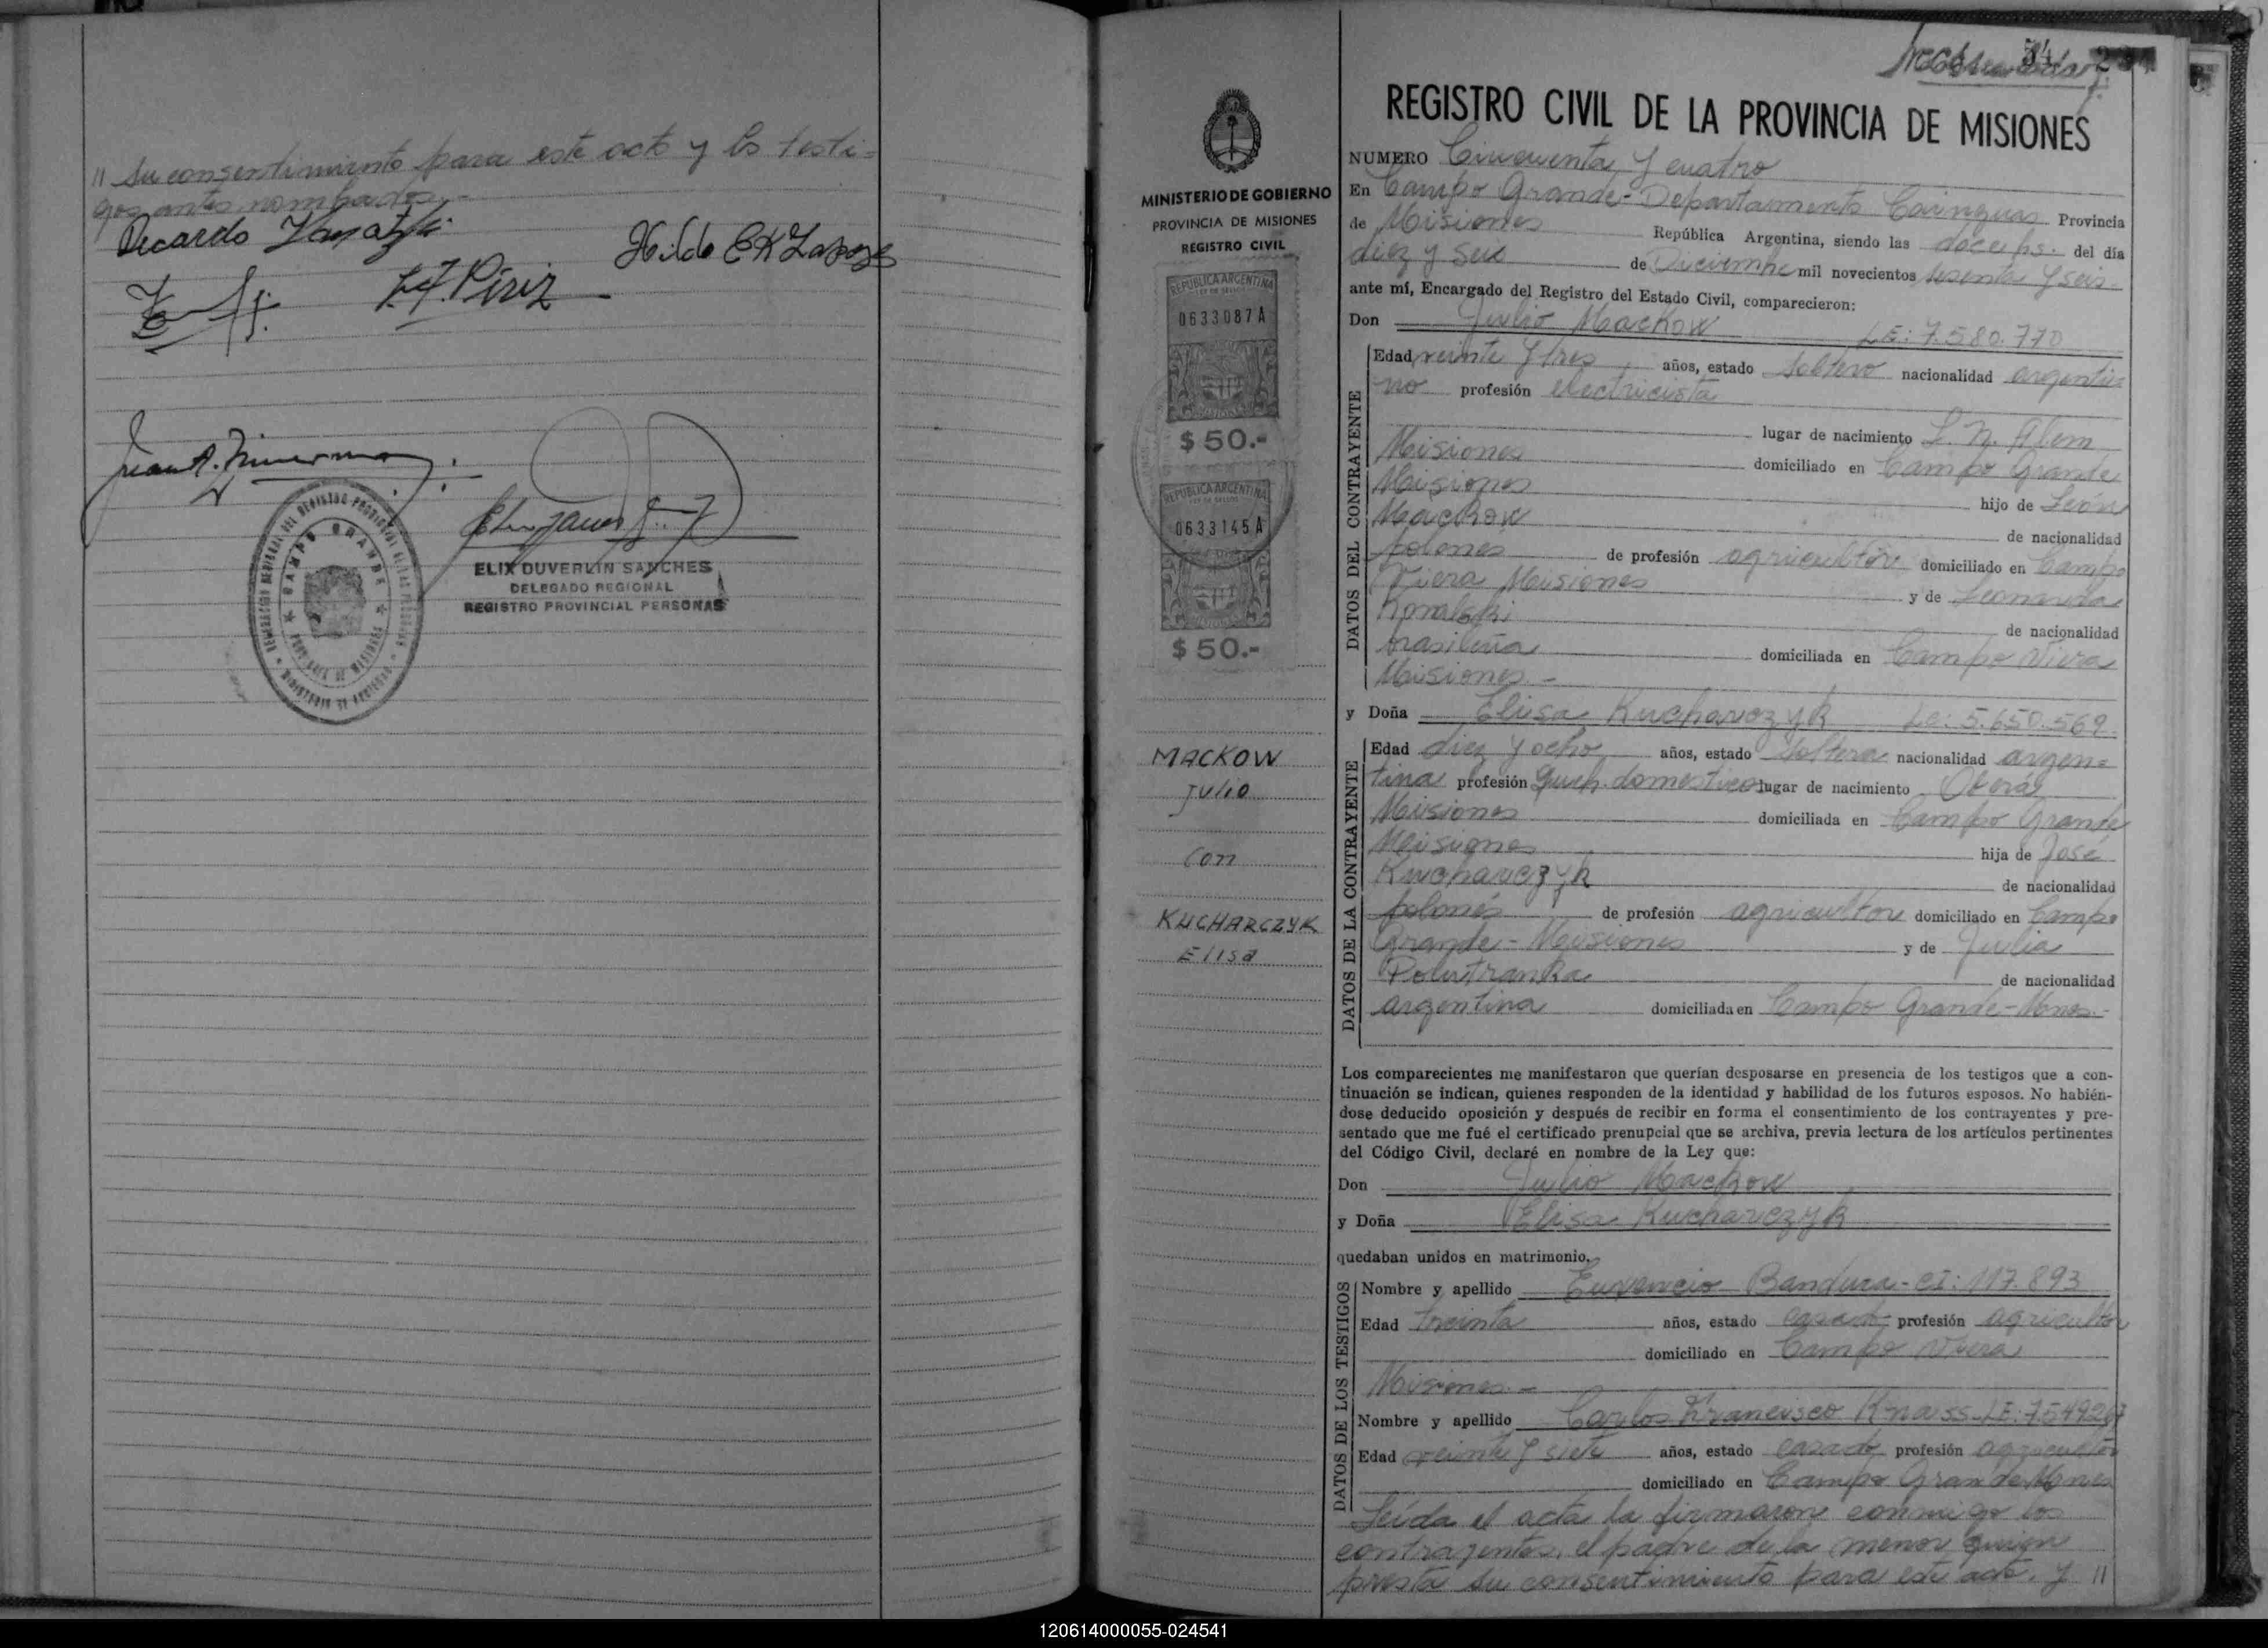 // su consentimiento para este acto y los testi=
gos antes nombados.-
Ricardo
Hilda E K
Juan A.
ELIX DUVERLIN SANCHES
DELEGADO REGIONAL
REGISTRO PROVINCIAL PERSONAS
CAMPO GRANDE
MINISTERIO DE GOBIERNO
PROVINCIA DE MISIONES
REGISTRO CIVIL
REPUBLICA ARGENTINA
0633087A
$ 50.-
REPUBLICA ARGENTINA
0633145A
$ 50.-
MACKOW
Julio
con
KUCHARCZYK
Elisa
54
REGISTRO CIVIL DE LA PROVINCIA DE MISIONES
NUMERO Cincuenta y cuatro
En Campo Grande - Departamento Cainguas Provincia
de Misiones República Argentina, siendo las doce hs. del día
diez y seis de Diciembre mil novecientos sesenta y seis-
ante mí, Encargado del Registro del Estado Civil, comparecieron:
Don Julio Mackow LE: 7.580.770
DATOS DEL CONTRAYENTE
Edad veinte y tres años, estado soltero nacionalidad argenti=
no profesión electricista
lugar de nacimiento L. N. Alem
Misiones domiciliado en Campo Grande
Misiones hijo de León
Mackow de nacionalidad
polonés de profesión agricultor domiciliado en Campo
Viera Misiones y de Leonarda
Kowalski de nacionalidad
brasileña domiciliada en Campo Viera
Misiones.-
y Doña Elisa Kucharczyk Lc: 5.650.569.
DATOS DE LA CONTRAYENTE
Edad diez y ocho años, estado soltera nacionalidad argen=
tina profesión Queh. domesticos lugar de nacimiento Oberá
Misiones domiciliada en Campo Grande
Misiones hija de José
Kucharczyk de nacionalidad
polonés de profesión agricultor domiciliado en Campo
Grande - Misiones y de Julia
Polutranka de nacionalidad
argentina domiciliada en Campo Grande - Mnes.-
Los comparecientes me manifestaron que querían desposarse en presencia de los testigos que a con-
tinuación se indican, quienes responden de la identidad y habilidad de los futuros esposos. No habién-
dose deducido oposición y después de recibir en forma el consentimiento de los contrayentes y pre-
sentado que me fué el certificado prenupcial que se archiva, previa lectura de los artículos pertinentes
del Código Civil, declaré en nombre de la Ley que:
Don Julio Mackow
y Doña Elisa Kucharczyk
quedaban unidos en matrimonio.
DATOS DE LOS TESTIGOS
Nombre y apellido Euvencio Bandura - CI: 117.893
Edad treinta años, estado casado profesión agricultor
domiciliado en Campo Viera
Misiones.-
Nombre y apellido Carlos Francisco Knass - LE: 7549267
Edad veinte y siete años, estado casado profesión agricultor
domiciliado en Campo Grande Mnes
Leída el acta la firmaron conmigo los
contrayentes, el padre de la menor quien
presta su consentimiento para este acto. y //
120614000055-024541